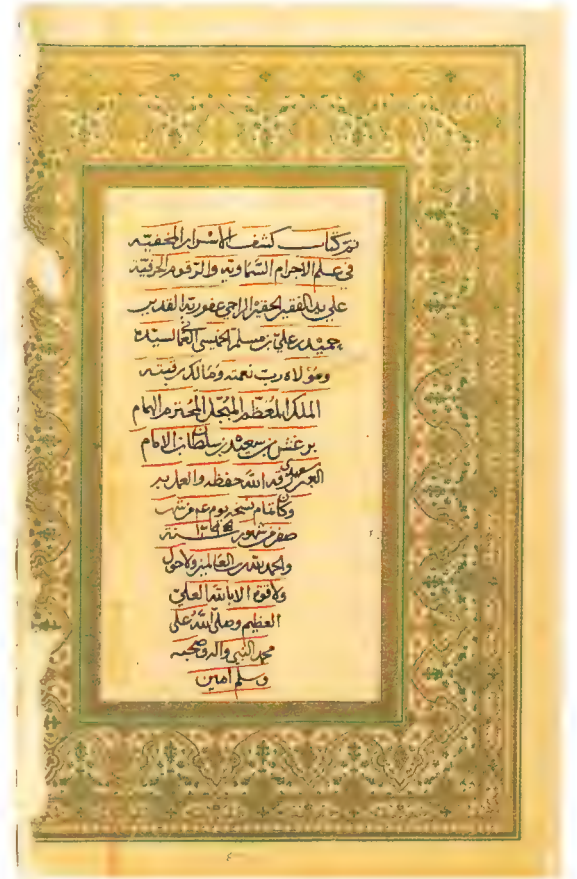 تم كتاب كشف الاسرار المخفيّه
في علم الاجرام السّماويّه والرّقوم الحرفيّة
على يد الفقير الحقير الراجي عفو ربّه القدير
حميد بن عليّ بن مسلم الخميسي لسيّده
ومولاه ربّ نعمته ومالك رقبته
الملك المعظّم المبجّل المحترم الهمام
برغش بن سعيد بن سلطان بن الامام
حفظه
وكان تمام نسخه يوم من شهر
صفر من شهور سنة
والحمد لله رب العالمين ولا حول
ولا قوّة الا بالله العليّ
العظيم وصلّى اللهُ على
محمد النّبي واله وصحبه
وسلم امين